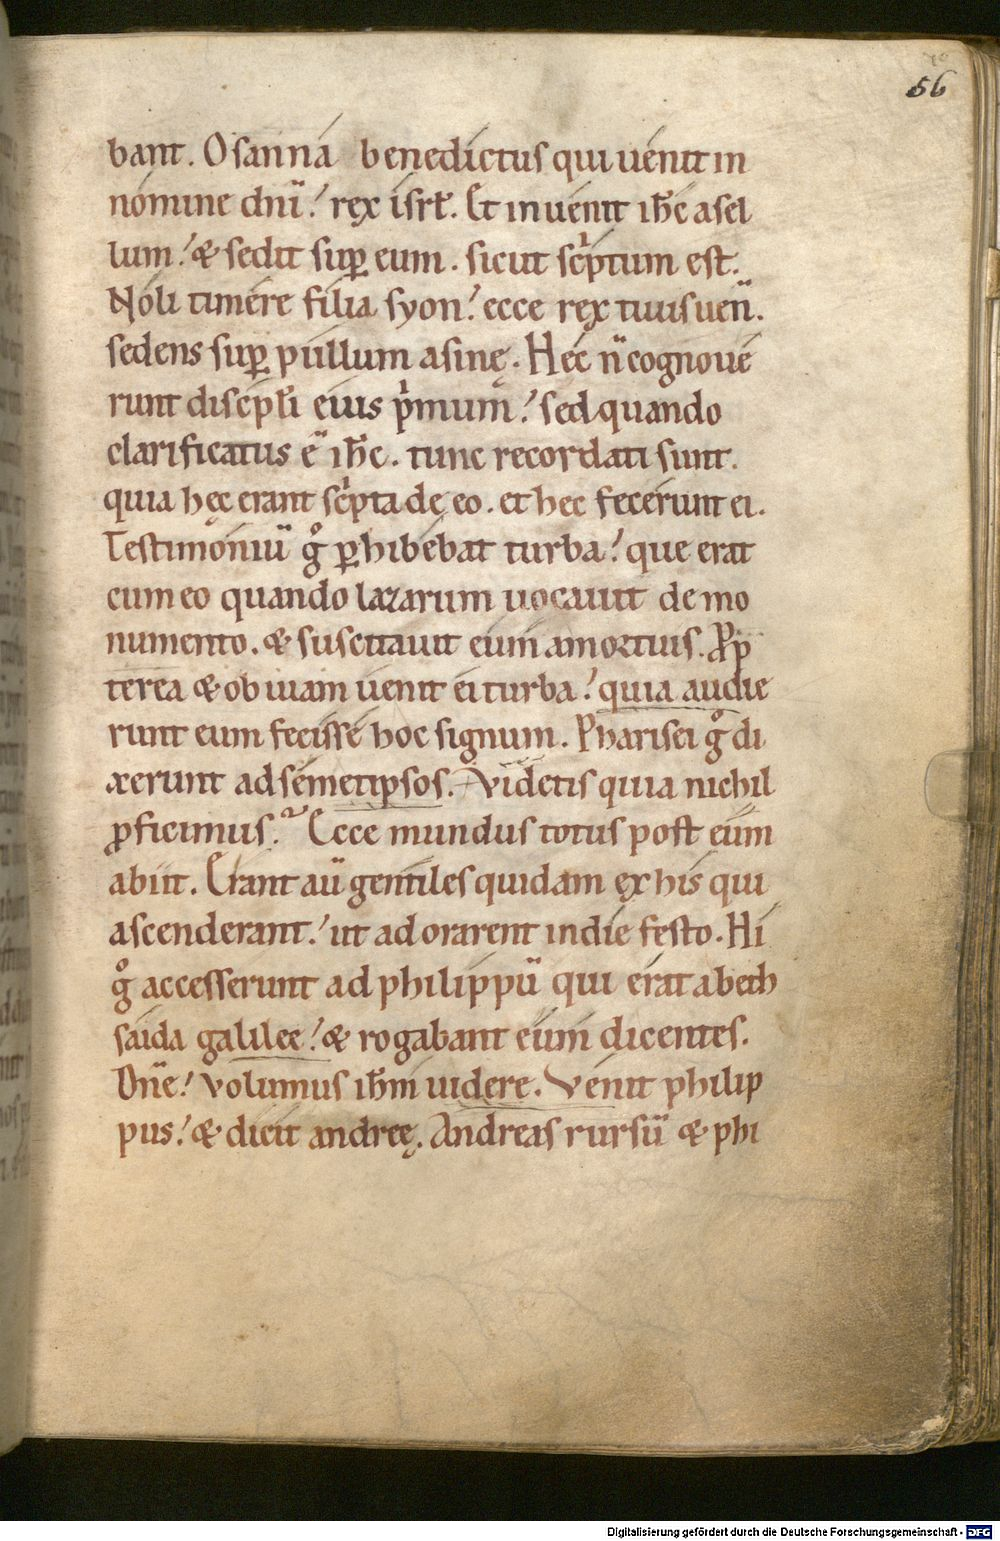 56
bant. Osanna benedictus qui uenit in
nomine dn̄i! rex isrl̄. Et inuenit ih̄c asel
lum! & sedit suꝑ eum. sicut sc̍ptum est.
Noli timere filia syon! ecce rex tuus uen̄.
sedens suꝑ pullum asinę. Hec n̄ cognoue
runt discipl̄i eius p̍mum! sed quando
clarificatus ē ih̄c. tunc recordati sunt.
quia hęc erant sc̍pta de eo. et hec fecerunt ei.
Testimoniū gͦ ꝑhibebat turba! que erat
cum eo quando lazarum uocauit de mo
numento. & suscitauit eum a mortuis. Ꝓp
terea & obuiam uenit ei turba! quia audie
runt eum fecisse hoc signum. Pharisei gͦ di
xerunt ad semetipsos. Videtis quia nichil
ꝓficimus. Ecce mundus totus post eum
abiit. Erant aū gentiles quidam ex his qui
ascenderant! ut adorarent in die festo. Hi
gͦ accesserunt ad philippū qui erat a beth
saida galilee! & rogabant eum dicentes.
Dn̄e! volumus ih̄m uidere. Venit philip
pus! & dicit andreę. Andreas rursū & phi
Digitalisierung gefördert durch die Deutsche Forschungsgemeinschaft - DFG